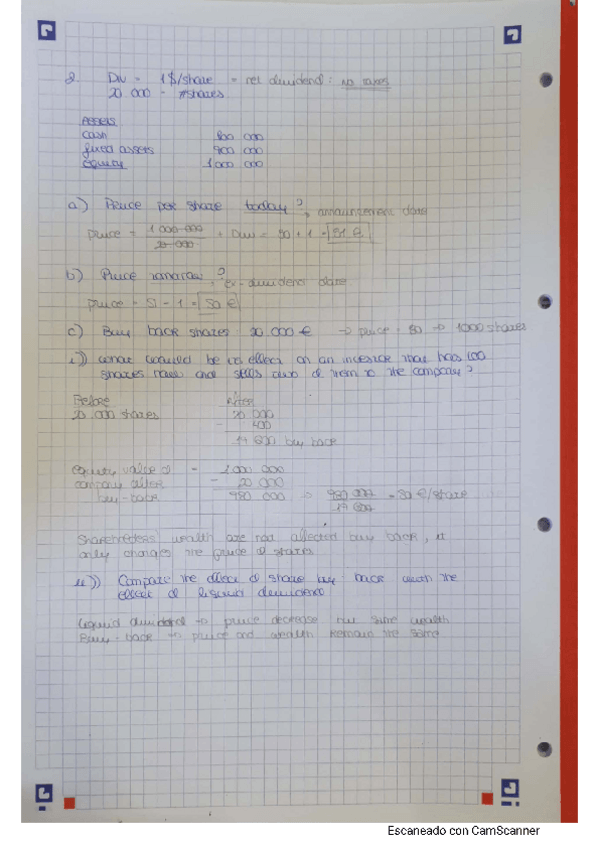 2. Div = 1 $/share = net dividend: no taxes
20 000 = # shares
Assets
Cash 100 000
fixed assets 900 000
equity 1 000 000
a) Price per share today? → announcement date
price = 1 000 000 / 20 000 + Div = 50 + 1 = 51 €
b) Price tomorrow? ex-dividend date
price = 51 - 1 = 50 €
c) Buy back shares: 20 000 € → price = 50 →
i)) what would be its effect on an investor that has 100
shares now and sells two of them to the company?
Before After
20 000 shares 20 000
- 400
19 600 buy back
equity value of = 1 000 000
company after - 20 000
buy-back 980 000 → 980 000 / 19 600 = 50 €/share
Shareholders' wealth are not affected buy back, it
only changes the price of shares
ii)) Compare the effect of share buy back with the
effect of liquid dividend
Liquid dividend → price decrease but same wealth
Buy-back → price and wealth remain the same
Escaneado con CamScanner